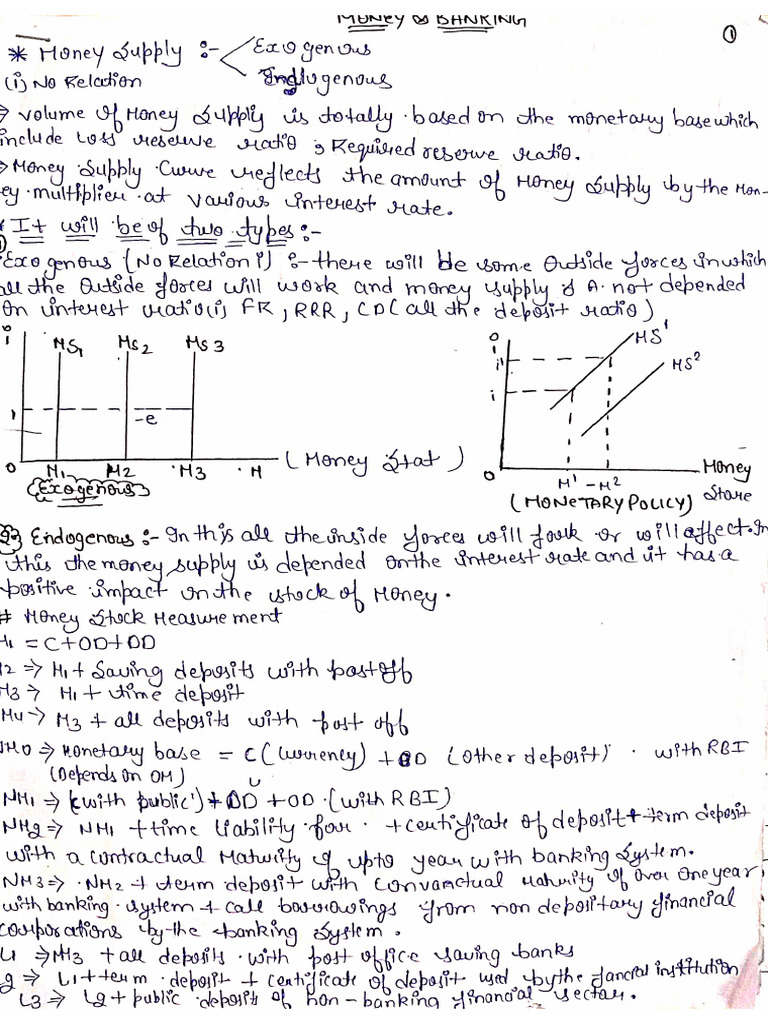 MONEY & BANKING
①
* Money Supply :- Exogenous
(i) No Relation Endogenous
→ Volume of Money Supply is totally based on the monetary base which
include Loss reserve ratio & Required reserve ratio.
→ Money Supply Curve reflects the amount of Money Supply by the Mon-
ey multiplier at various interest rate.
* It will be of two types :-
Exogenous (No Relation i) :- there will be some outside forces in which
all the outside forces will work and money supply is not depended
on interest ratio (i, FR, RRR, CD (all the deposit ratio)
i MS1 MS2 MS3
-e
O M1 M2 M3 M (Money Stat)
Exogenous
i MS¹
i¹ MS²
i
O M¹ - M² Money
(MONETARY POLICY) Store
2) Endogenous :- In this all the inside forces will or will affect. In
this the money supply is depended on the interest rate and it has a
positive impact on the stock of Money.
# Money Stock Measurement
M1 = C+OD+DD
M2 ⇒ M1 + Saving deposits with post off
M3 → M1 + time deposit
M4 → M3 + all deposits with post off
NM0 ⇒ Monetary base = C (Currency) + OD (other deposit) with RBI
(Depends on OM)
NM1 ⇒ (with public) + DD + OD (with RBI)
NM2 ⇒ NM1 + time liability for + certificate of deposit + term deposit
with a contractual Maturity of upto year with banking System.
NM3 ⇒ NM2 + term deposit with convanctual maturity of over one year
with banking system + call borrowings from non depositary financial
corporations by the banking System.
L1 ⇒ NM3 + all deposits with post office saving banks
L2 ⇒ L1 + term deposit + certificate of deposit used by the fancial institution
L3 ⇒ L2 + public deposits of non-banking financial sector.